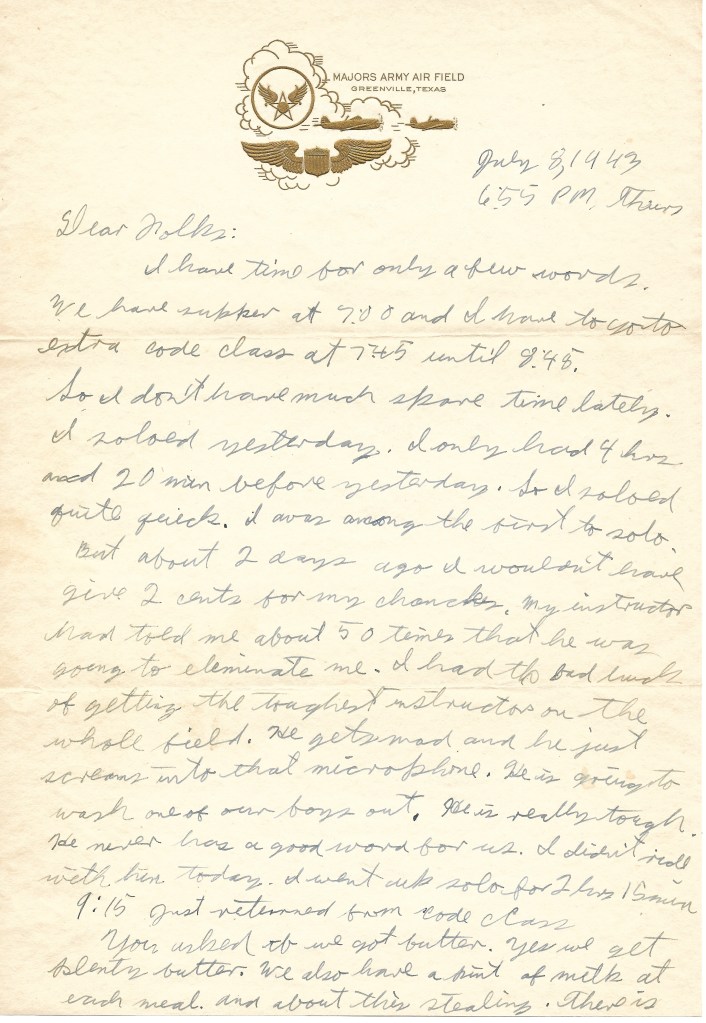 MAJORS ARMY AIR FIELD
GREENVILLE, TEXAS
July 8, 1943
6:55 PM, Thurs
Dear Folks:
I have time for only a few words.
We have supper at 7:00 and I have to go to
extra code class at 7:45 until 8:45.
So I don't have much spare time lately.
I soloed yesterday. I only had 4 hrs
and 20 min before yesterday. So I soloed
quite quick. I was among the first to solo.
But about 2 days ago I wouldn't have
give 2 cents for my chances. My instructor
had told me about 50 times that he was
going to eliminate me. I had the bad luck
of getting the toughest instructor on the
whole field. He gets mad and he just
screams into that microphone. He is going to
wash one of our boys out. He is really tough.
He never has a good word for us. I didn't ride
with him today. I went up solo for 2 hrs 15 min
9:15 Just returned from code class
You asked if we got butter. Yes we get
plenty butter. We also have a pint of milk at
each meal. and about this stealing. There is